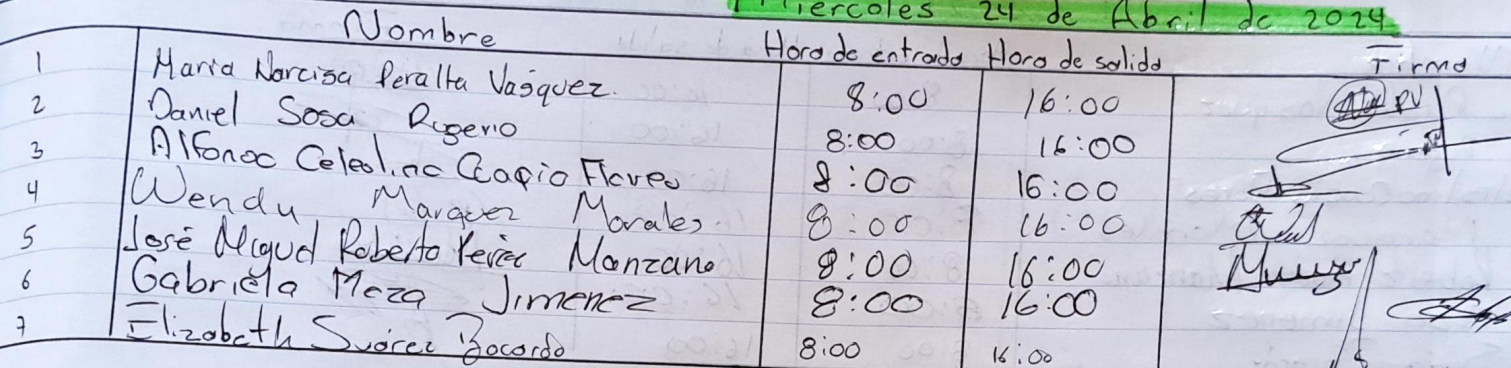 Miercoles 24 de Abril de 2024
Nombre Hora de entrada Hora de salida Firma
1 Maria Narcisa Peralta Vasquez. 8:00 16:00 PV
2 Daniel Sosa Rogerio 8:00 16:00
3 Alfonso Celestino Flores 8:00 16:00
4 Wendy Marquez Morales 8:00 16:00
5 José Miguel Roberto Perez Manzano 8:00 16:00
6 Gabriela Meza Jimenez 8:00 16:00
7 Elizabeth Suárez Bocardo 8:00 16:00